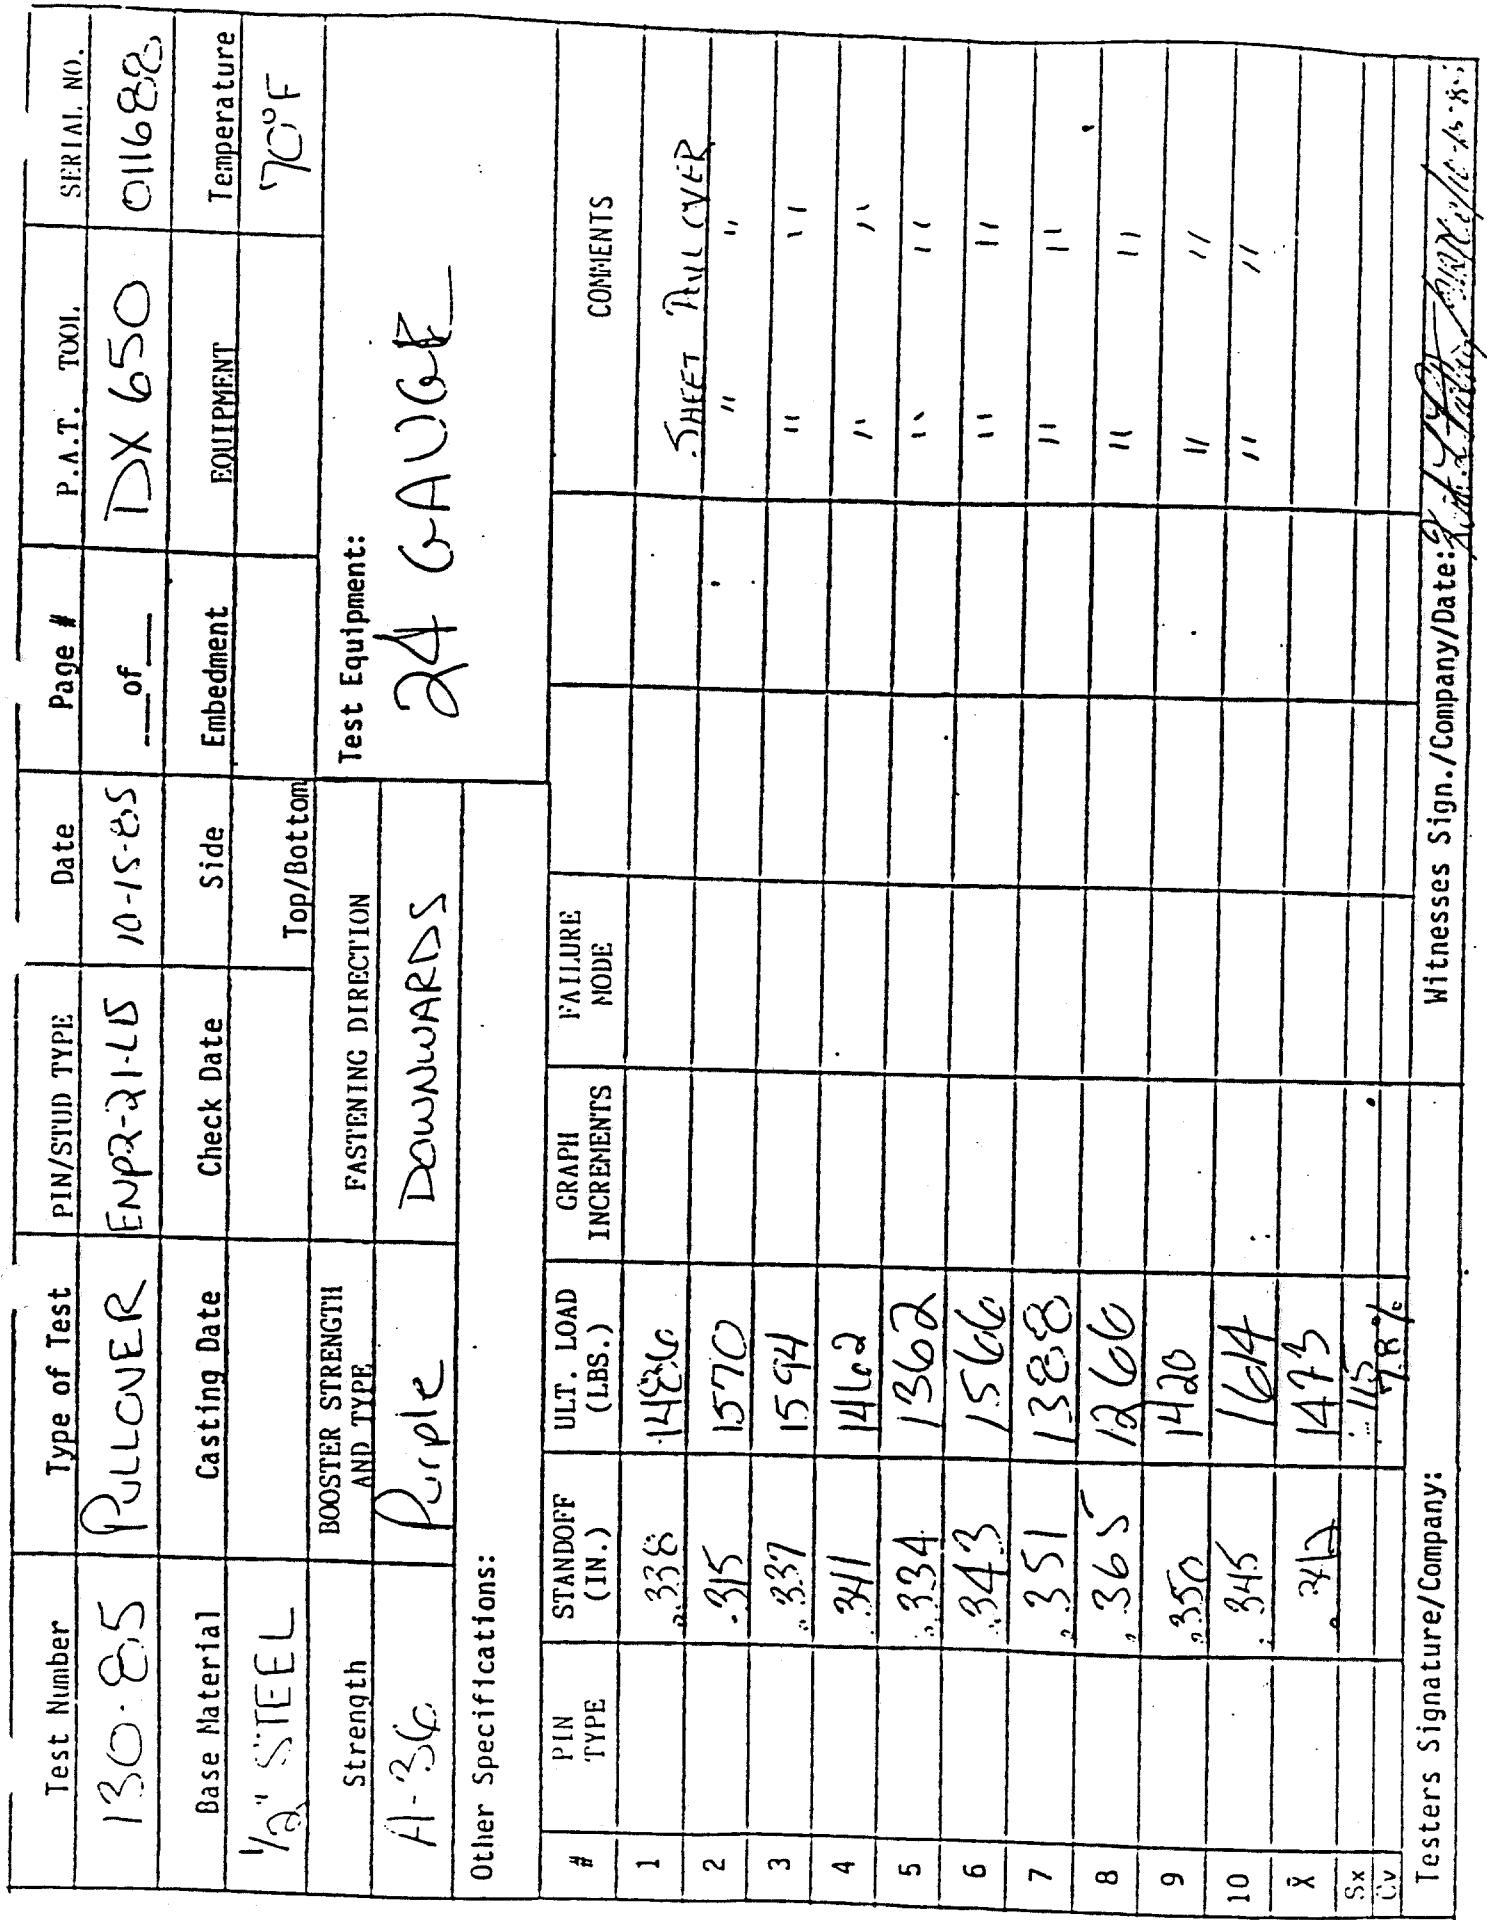 Test Number Type of Test PIN/STUD TYPE Date Page # P.A.T. TOOL SERIAL NO.
130-85 PULLOVER ENP2-21-L15 10-15-85 __of__ DX 650 011688
Base Material Casting Date Check Date Side Embedment EQUIPMENT Temperature
1/2" STEEL Top/Bottom 70°F
Strength BOOSTER STRENGTH AND TYPE FASTENING DIRECTION Test Equipment:
A-36 Purple DOWNWARDS 24 GAUGE
Other Specifications:
# PIN TYPE STANDOFF (IN.) ULT. LOAD (LBS.) GRAPH INCREMENTS FAILURE MODE COMMENTS
1 .338 1486 SHEET PULLOVER
2 .315 1570 " "
3 .337 1594 " "
4 .341 1462 " "
5 .334 1362 " "
6 .343 1566 " "
7 .351 1388 " "
8 .365 1266 " "
9 .350 1420 " "
10 .345 1614 " "
X̄ .342 1473
Sx 115
Cv 7.8%
Testers Signature/Company: Witnesses Sign./Company/Date: